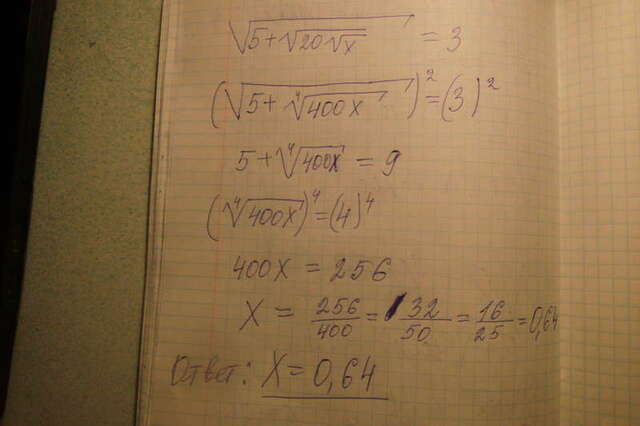 √(5+√(20√x)) = 3
(√(5+⁴√(400x)))² = (3)²
5+⁴√(400x) = 9
(⁴√(400x))⁴ = (4)⁴
400x = 256
x = 256/400 = 32/50 = 16/25 = 0,64
Ответ: x = 0,64